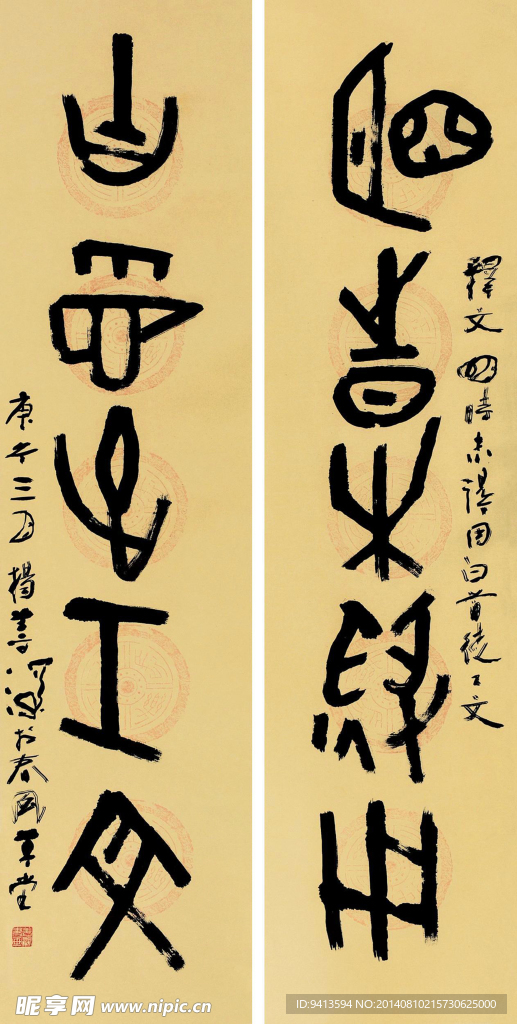 明時未得用
釋文 明時未得用白首徒工文
白首徒工文
庚午三月楊善深於春風草堂
昵享网 www.nipic.cn
ID:9413594 NO:20140810215730625000